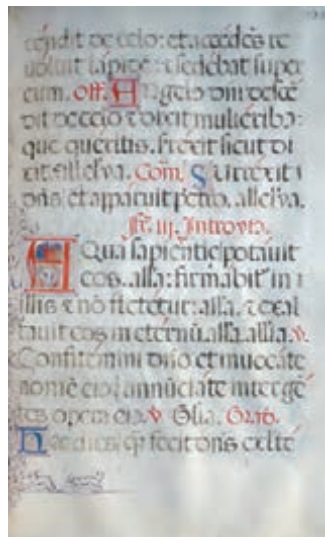 cendit de celo: et accedēs re
uoluit lapidē: ⁊ sedebat super
eum. Off. Angelus dn̄i descē
dit de celo ⁊ dixit mulierib9:
que queritis. surrexit sicut di
xit. allelva. Com̄. Surrexit
dn̄s et apparuit petro. allelva.
fr̄. iij. Introytꝰ.
Aqua sapientie potauit
eos. alla: firmabit~ in i
llis ⁊ nō flectetur: alla. ⁊ exal
tauit eos in eternū. alla. allia. v̄.
Confitemini dn̄o et inuocate
nomē eiꝰ: annūciate inter gē
tes opera eiꝰ. v̄. Glia. Grad.
Hec dies: quā fecit dn̄s exlte